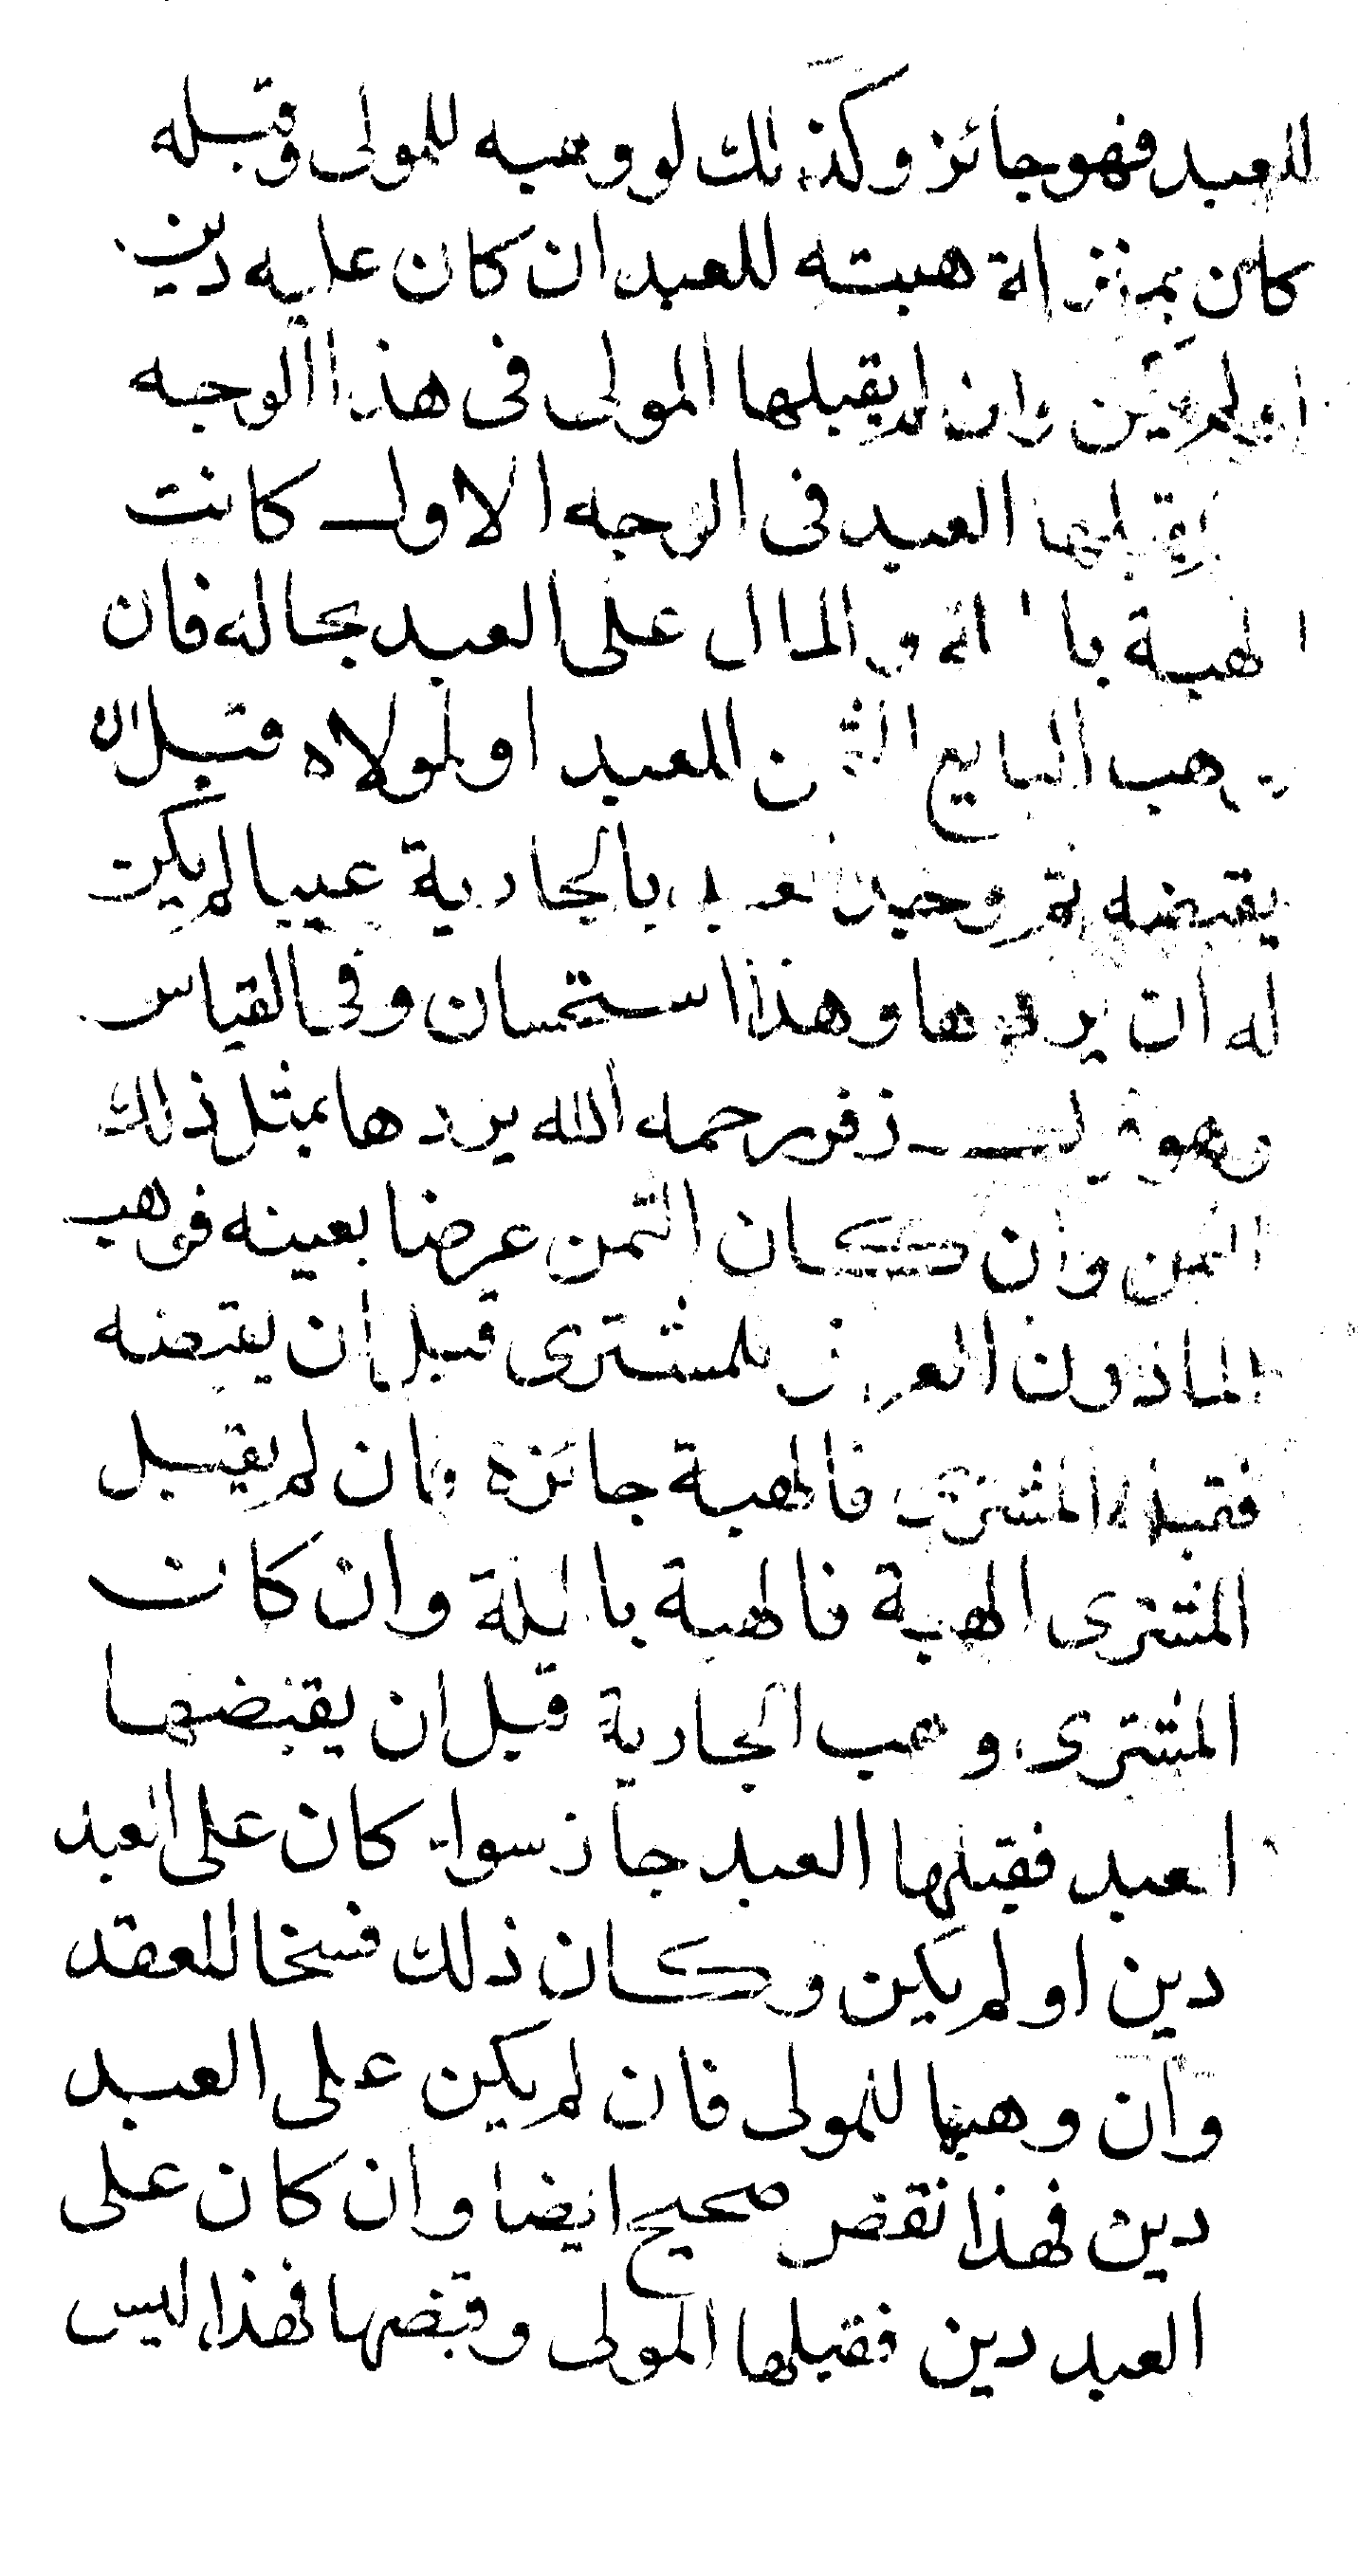 للعبد فهو جائز وكذلك لو وهبه للمولى وقبله
كان بمنزلة هبته للعبد ان كان عليه دين
او لم يكن وان لم يقبلها المولى فى هذا الوجه
يقبلها العبد فى الوجه الاول كانت
الهبة والمال على العبد بحاله فان
وهب البايع الثمن للعبد او لمولاه قبل ان
يقبضه ثم وجد العبد بالجارية عيبا لم يكن
له ان يردها وهذا استحسان وفى القياس
وهو زفر رحمه الله يردها بمثل ذلك
الثمن وان كان الثمن عرضا بعينه فوهب
الماذون العرض للمشترى قبل ان يقبضه
فقبله المشترى فالهبة جائزة وان لم يقبل
المشترى الهبة فالهبة باطلة وان كان
المشترى وهب الجارية قبل ان يقبضها
العبد فقبلها العبد جاز سواء كان على العبد
دين او لم يكن وكان ذلك فسخا للعقد
وان وهبها للمولى فان لم يكن على العبد
دين فهذا نقض صحيح ايضا وان كان على
العبد دين فقبلها المولى وقبضها فهذا ليس